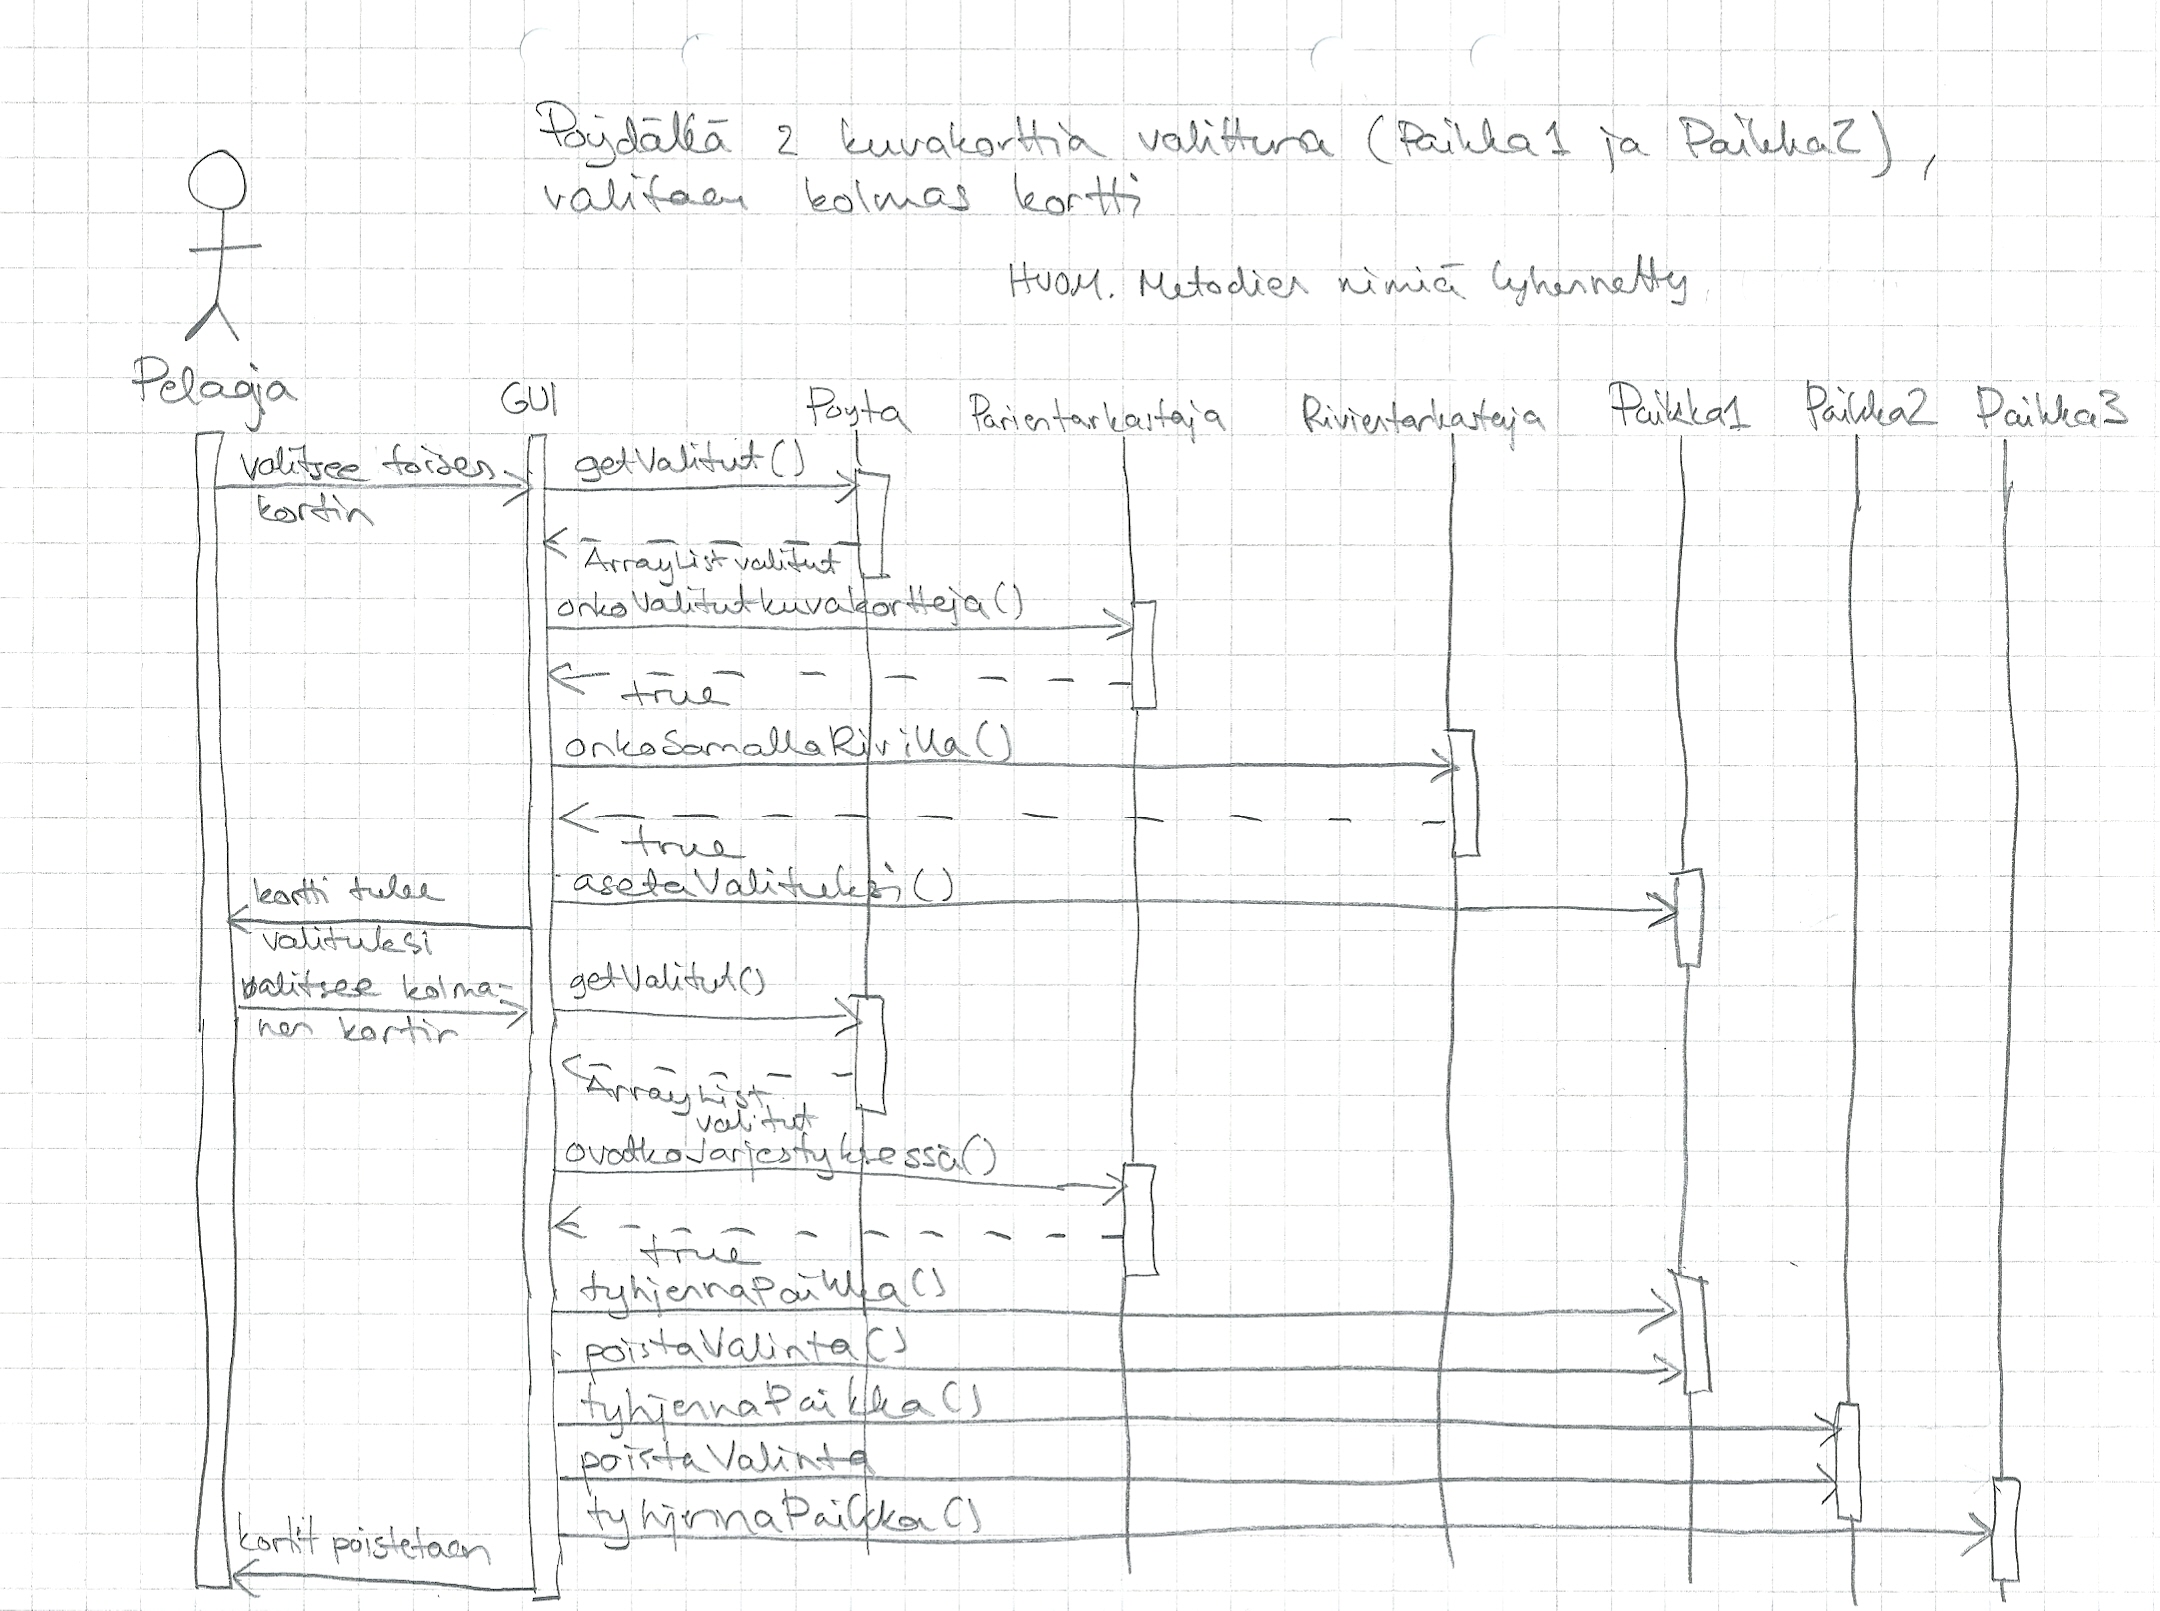 Pöydällä 2 kuvakorttia valittuna (Paikka1 ja Paikka2),
valitaan kolmas kortti
HUOM. Metodien nimiä lyhennetty
Pelaaja
GUI
Poyta
Parientarkastaja
Rivientarkastaja
Paikka1
Paikka2
Paikka3
valitsee toisen
kortin
getValitut()
ArrayList valitut
onkoValitutkuvakortteja()
true
onkoSamallaRivilla()
true
asetaValituksi()
kortti tulee
valituksi
valitsee kolma-
nen kortin
getValitut()
ArrayList
valitut
ovatkoJarjestyksessä()
true
tyhjennaPaikka()
poistaValinta()
tyhjennaPaikka()
poistaValinta
tyhjennaPaikka()
kortit poistetaan